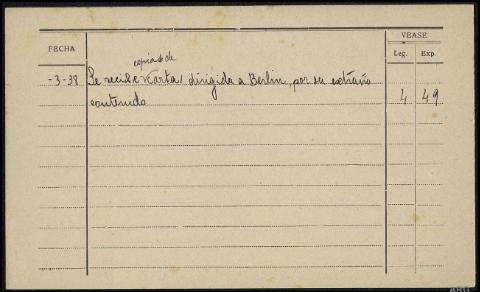 VÉASE
FECHA
Leg. Exp.
copias de
-3-38 Se recibe carta, dirigida a Berlin, por su extraño
contenido 4 49
ARG